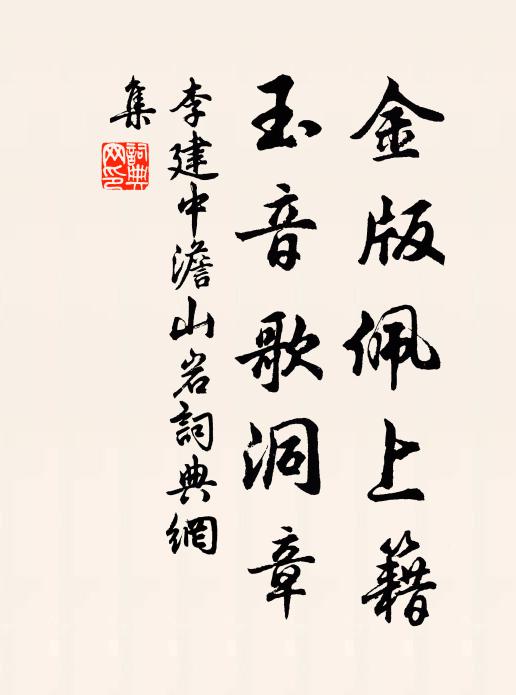 金版佩上籍
玉音歌洞章
李建中澹山岩詞典網
集
詞典
网印